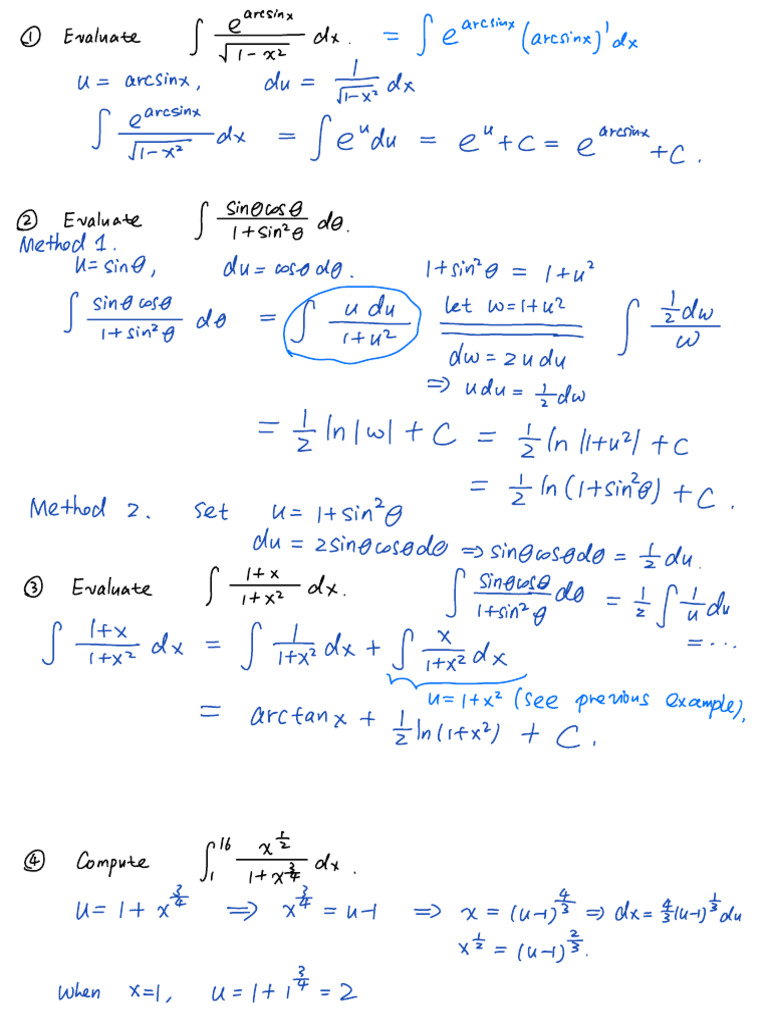 ① Evaluate ∫ e^{arcsinx}/√(1-x²) dx. = ∫ e^{arcsinx} (arcsinx)' dx
u = arcsinx, du = 1/√(1-x²) dx
∫ e^{arcsinx}/√(1-x²) dx = ∫ e^u du = e^u + C = e^{arcsinx} + C.
② Evaluate ∫ sinθcosθ/(1+sin²θ) dθ.
Method 1.
u = sinθ, du = cosθ dθ. 1+sin²θ = 1+u²
∫ sinθ cosθ/(1+sin²θ) dθ = ∫ u du/(1+u²) let w=1+u² ∫ ½dw/w
dw = 2u du
⇒ udu = ½dw
= ½ ln|w| + C = ½ ln|1+u²| + C
= ½ ln(1+sin²θ) + C.
Method 2. set u = 1+sin²θ
du = 2sinθcosθdθ ⇒ sinθcosθdθ = ½ du.
∫ sinθcosθ/(1+sin²θ) dθ = ½ ∫ 1/u du
= ...
③ Evaluate ∫ (1+x)/(1+x²) dx.
∫ (1+x)/(1+x²) dx = ∫ 1/(1+x²) dx + ∫ x/(1+x²) dx
u = 1+x² (see previous example),
= arctanx + ½ ln(1+x²) + C.
④ Compute ∫₁^{16} x^{1/2}/(1+x^{3/4}) dx.
u = 1+x^{3/4} ⇒ x^{3/4} = u-1 ⇒ x = (u-1)^{4/3} ⇒ dx = 4/3 (u-1)^{1/3} du
x^{1/2} = (u-1)^{2/3}.
When x=1, u = 1+1^{3/4} = 2